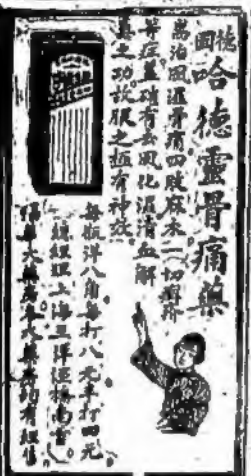 德國
哈德靈骨痛藥
善治風濕骨痛四肢麻木一切痹
等症蓋確有去風化濕清血解
毒之功故服之極有神效
每瓶洋八角每打八元半打四元
經理上海三洋涇橋南首
大藥房各大藥房均有經售